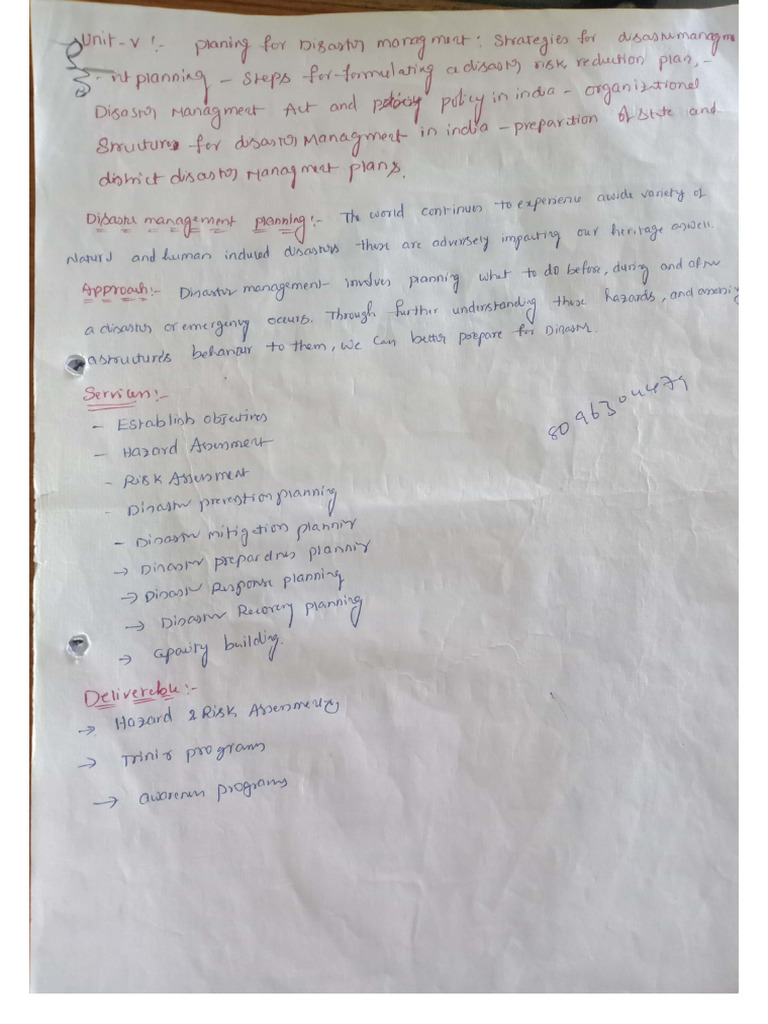 Unit-V :- planing for Disaster managment : Strategies for disastermanagm
nt planning - Steps for formulating a disaster risk reduction plan, -
Disaster Managment Act and policy in india - organizational
Structures for disaster Managment in india - prepartion of state and
district disaster Managment plans.
Disaster management planning :- The world continues to experience a wide variety of
Natural and human induced disasters these are adversely impacting our heritage aswell.
Approach :- Disaster management involves planning what to do before, during and after
a disaster or emergency occurs. Through further understanding these hazards, and assessing
a structures behaviour to them, we can better prepare for Disaster.
Services :-
- Establish objectives
- Hazard Assessment
8096304479
- Risk Assessment
- Disaster prevention planning
- Disaster mitigation planning
→ Disaster prepardnes planning
→ Disaster Response planning
→ Disaster Recovery planning
→ Capacity building.
Deliverable :-
→ Hazard & Risk Assessments
→ programs
→ awareness programs